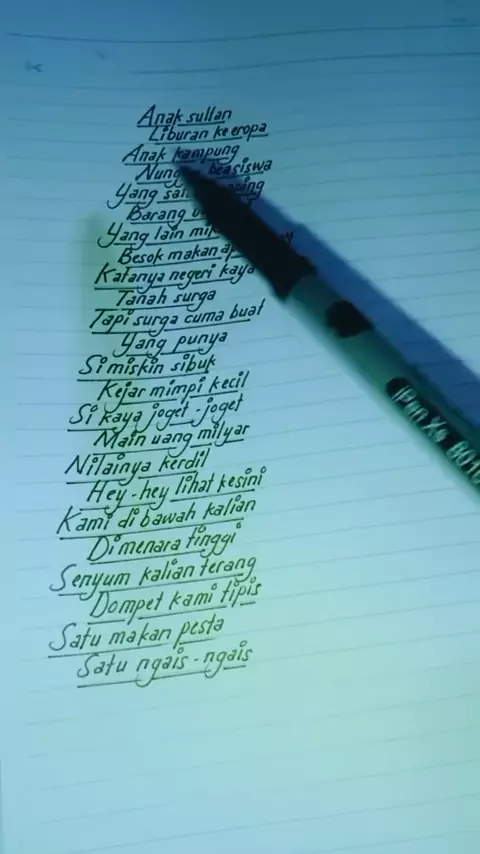 Anak sultan
Liburan ke eropa
Anak kampung
beasiswa
Yang
Barang
Yang lain
Besok makan
Katanya negeri kaya
Tanah surga
Tapi surga cuma buat
Yang punya
Si miskin sibuk
Kejar mimpi kecil
Si kaya joget-joget
Main uang milyar
Nilainya kerdil
Hey-hey lihat kesini
Kami di bawah kalian
Di menara tinggi
Senyum kalian terang
Dompet kami tipis
Satu makan pesta
Satu ngais-ngais